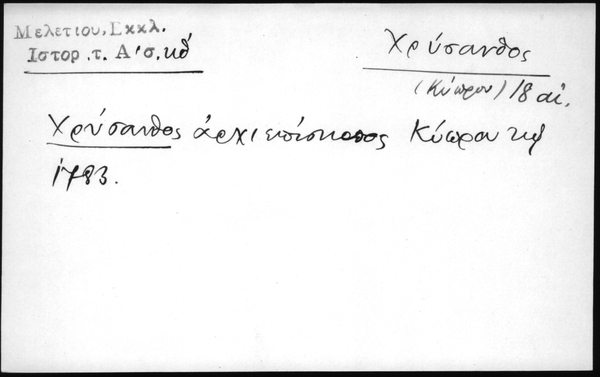 Μελετιου, Εκκλ.
Ιστορ. τ. Α' σ. κθ'
Χρύσανθος
(Κύπρου) 18 αἰ.
Χρύσανθος ἀρχιεπίσκοπος Κύπρου τῷ
1783.